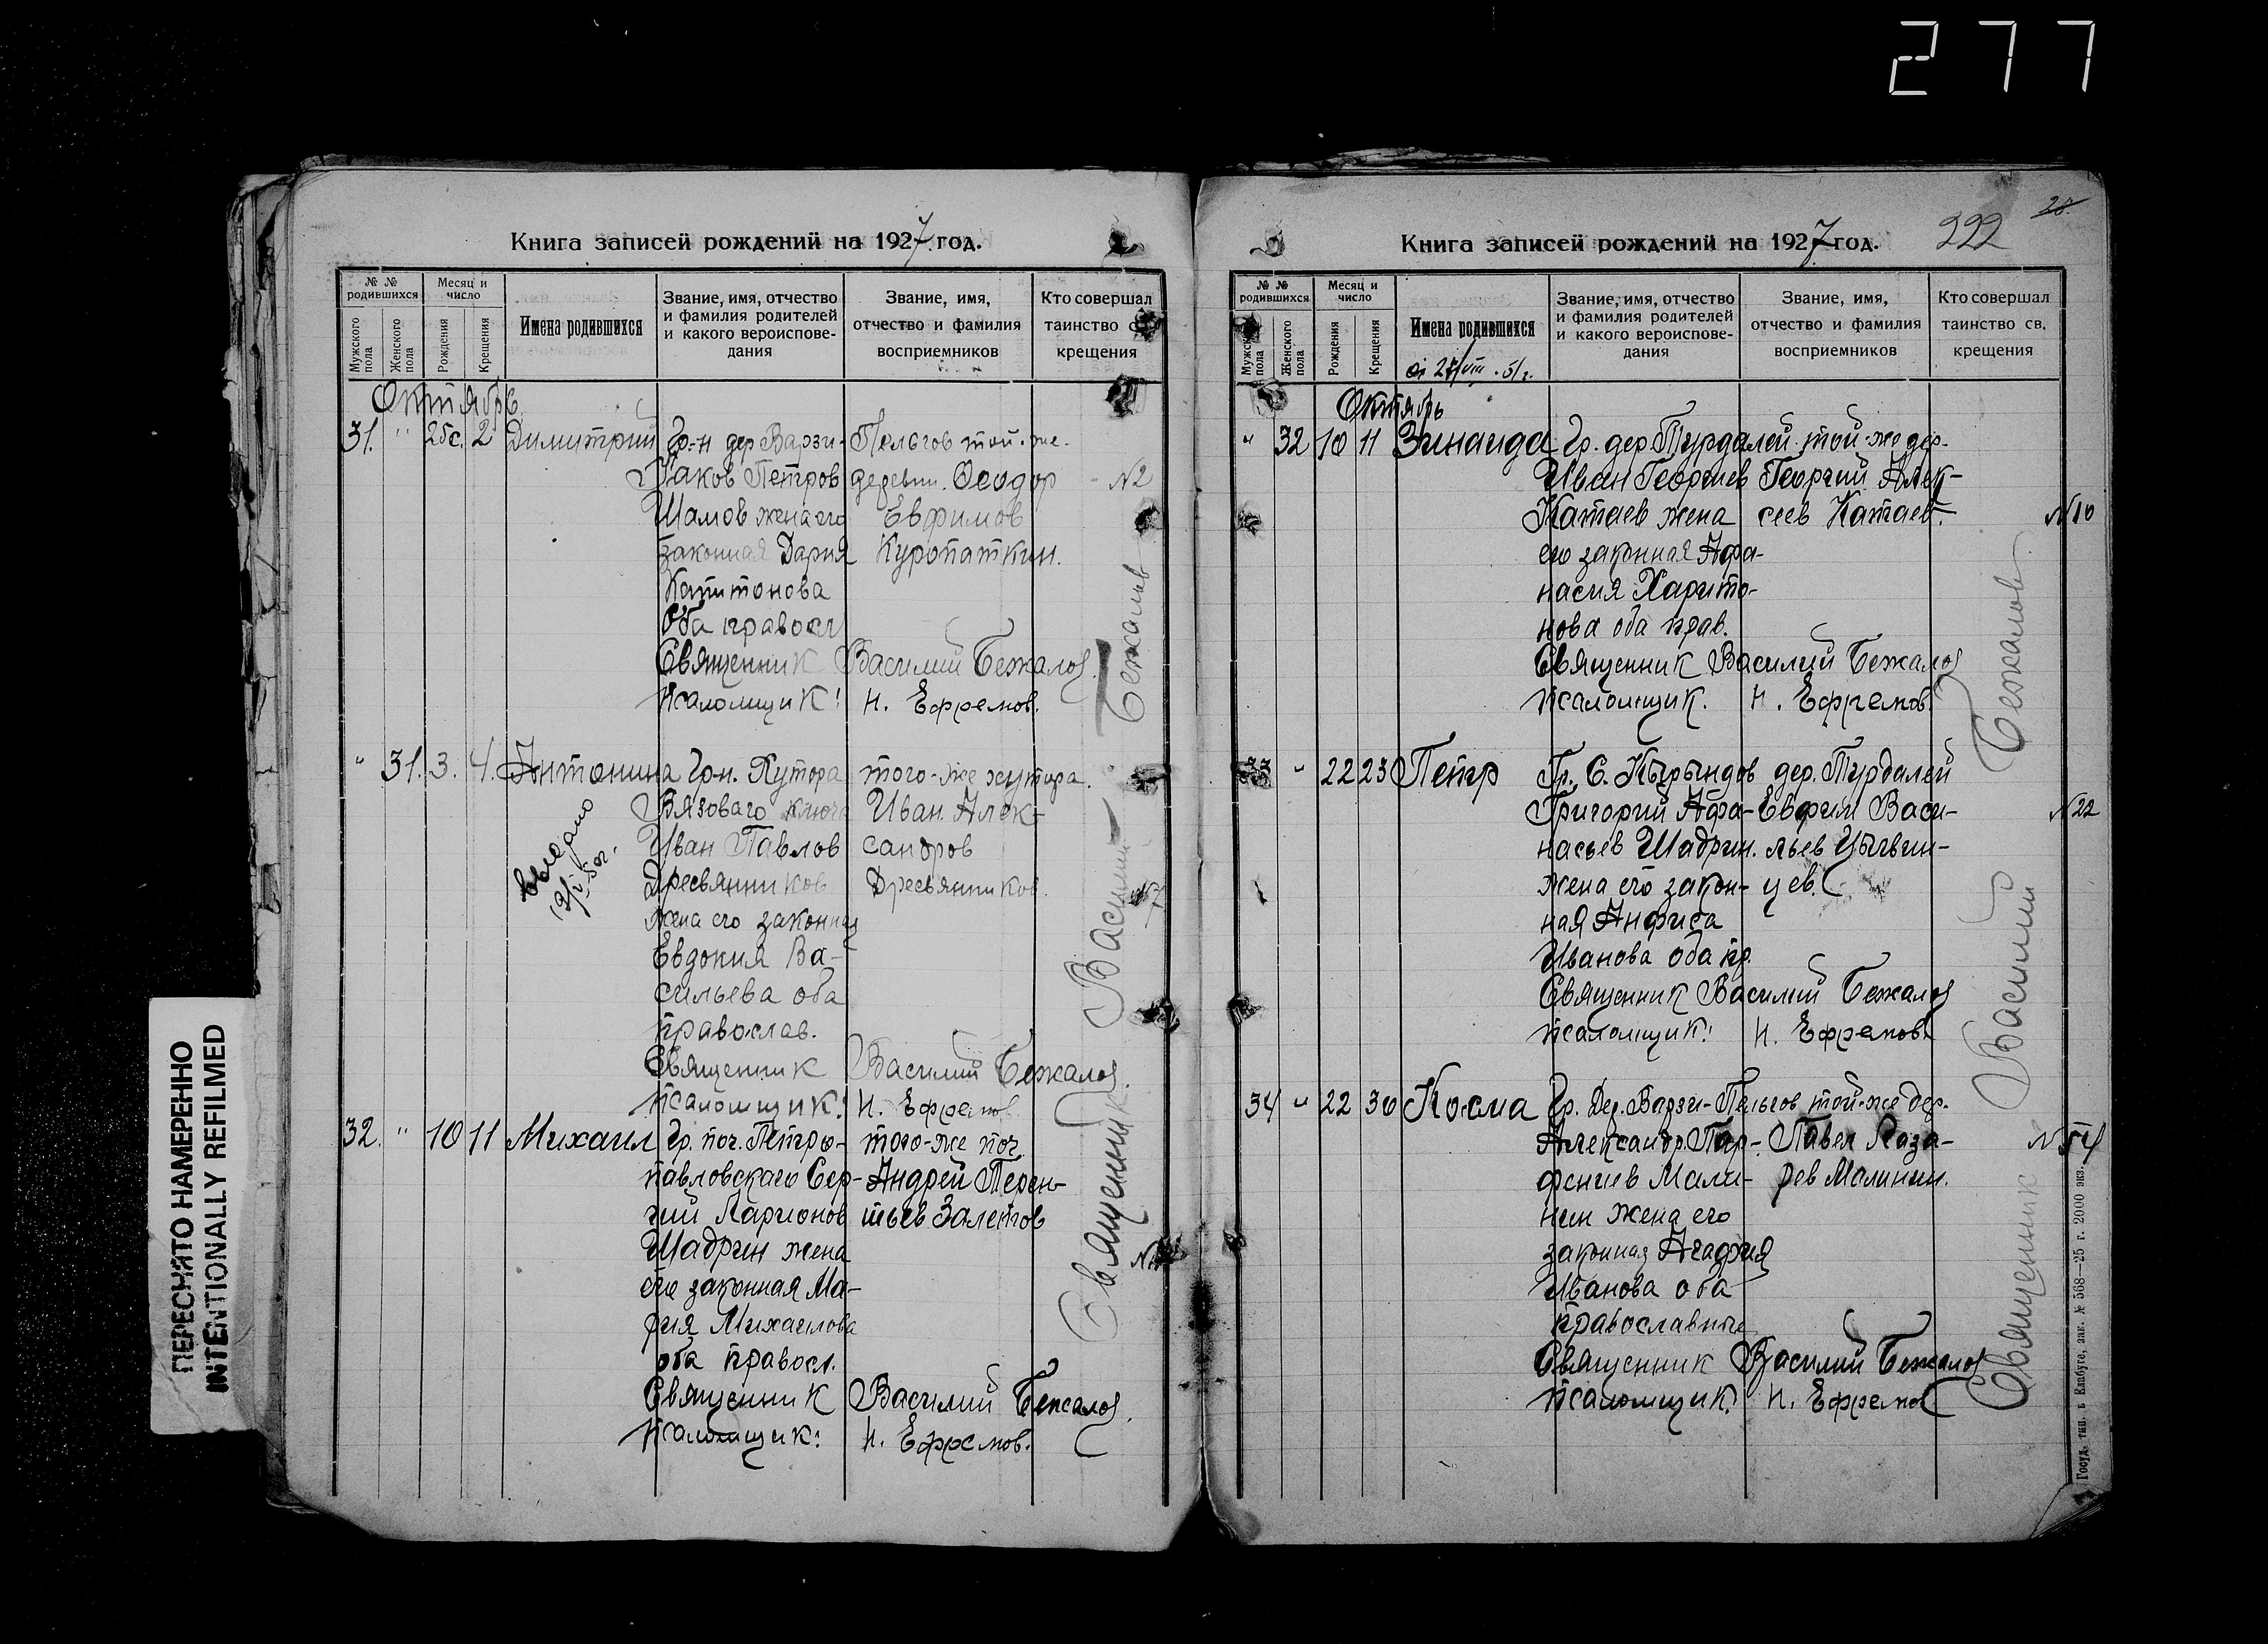 277
ПЕРЕСНЯТО НАМЕРЕННО
INTENTIONALLY REFILMED
Книга записей рождений на 1927 год.
№ № родившихся
Мужского пола
Женского пола
Месяц и число
Рождения
Крещения
Имена родившихся
Звание, имя, отчество и фамилия родителей и какого вероисповедания
Звание, имя, отчество и фамилия восприемников
Кто совершал таинство св. крещения
Октябрь
31. " 25с. 2 Димитрий Гр-н дер Варзи- Пельгов той-же
Иаков Петров деревни. Феодор №2
Шамов жена его Евфимов
законная Дария Куропаткин.
Капитонова
Оба правосл
Священник Василий Бежалов.
Псаломщик: Н. Ефремов.
" 31. 3. 4. Антонина Гр-н. Хутора того-же хутора.
Вязоваго ключа Иван Алек-
Иван Павлов сандров
Дресвянников Дресвянников.
жена его законная
Евдокия Ва-
сильева оба
православ.
Священник Василий Бежалов.
Псаломщик: Н. Ефремов
выдано
32. " 10 11 Михаил Гр. поч. Петро- того-же поч.
павловскаго Сер- Андрей Терен-
гий Ларионов тьев Залетов
Шадрин жена
его законная Ма-
рия Михаилова
оба правосл.
Священник Василий Бежалов.
Псаломщик: Н. Ефремов.
Священник Василий Бежалов
Книга записей рождений на 1927 год.
222
28.
№ № родившихся
Мужск пола
Женского пола
Месяц и число
Рождения
Крещения
Имена родившихся
Звание, имя, отчество и фамилия родителей и какого вероисповедания
Звание, имя, отчество и фамилия восприемников
Кто совершал таинство св. крещения
Октябрь
" 32 10 11 Зинаида Гр. дер. Турдалей той-же дер.
Иван Георгиев Георгий Алек-
Катаев жена сеев Катаев. №10
его законная Афа-
насия Харито-
нова оба прав.
Священник Василий Бежалов
Псаломщик. Н. Ефремов.
33 " 22 23 Петр Гр. С. Кырындов дер. Турдалей
Григорий Афа- Евфим Васи- №22
насьев Шадрин. льев Цыгвин-
жена его закон- цев.
ная Анфиса
Иванова оба пр.
Священник Василий Бежалов
Псаломщик: Н. Ефремов.
34 " 22 30 Косма Гр. Дер. Варзи-Пельгов той-же дер.
Александр Пар- Павел Лаза- №54
фениев Мали- рев Малинин.
нин жена его
законная Агафия
Иванова оба
православные
Священник Василий Бежалов
Псаломщик: Н. Ефремов
Священник Василий Бежалов
Госуд. тип. в Елабуге, зак. № 568—25 г. 2000 экз.